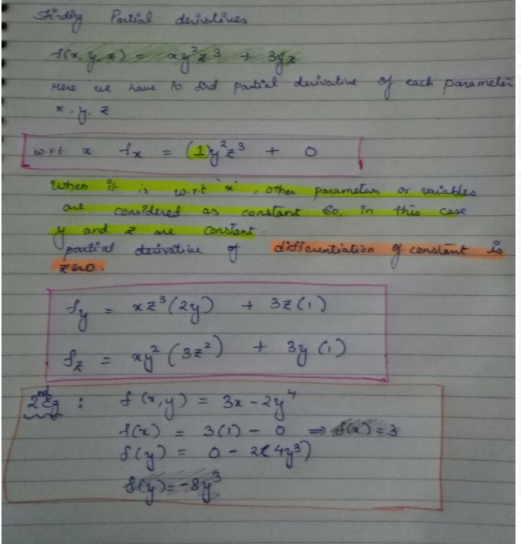 Finding Partial derivatives
f(x,y,z) = xy²z³ + 3yz
Here we have to find partial derivative of each parameter
x, y, z
w.r.t. x fx = (1)y²z³ + 0
When it is w.r.t "x", other parameters or variables
are considered as constant So, in this case
y and z are constant.
partial derivative of differentiation of constant is
zero.
fy = xz³(2y) + 3z(1)
fz = xy²(3z²) + 3y(1)
2nd Eg : f(x,y) = 3x - 2y⁴
f(x) = 3(1) - 0 ⇒ f(x) = 3
f(y) = 0 - 2(4y³)
f(y) = -8y³